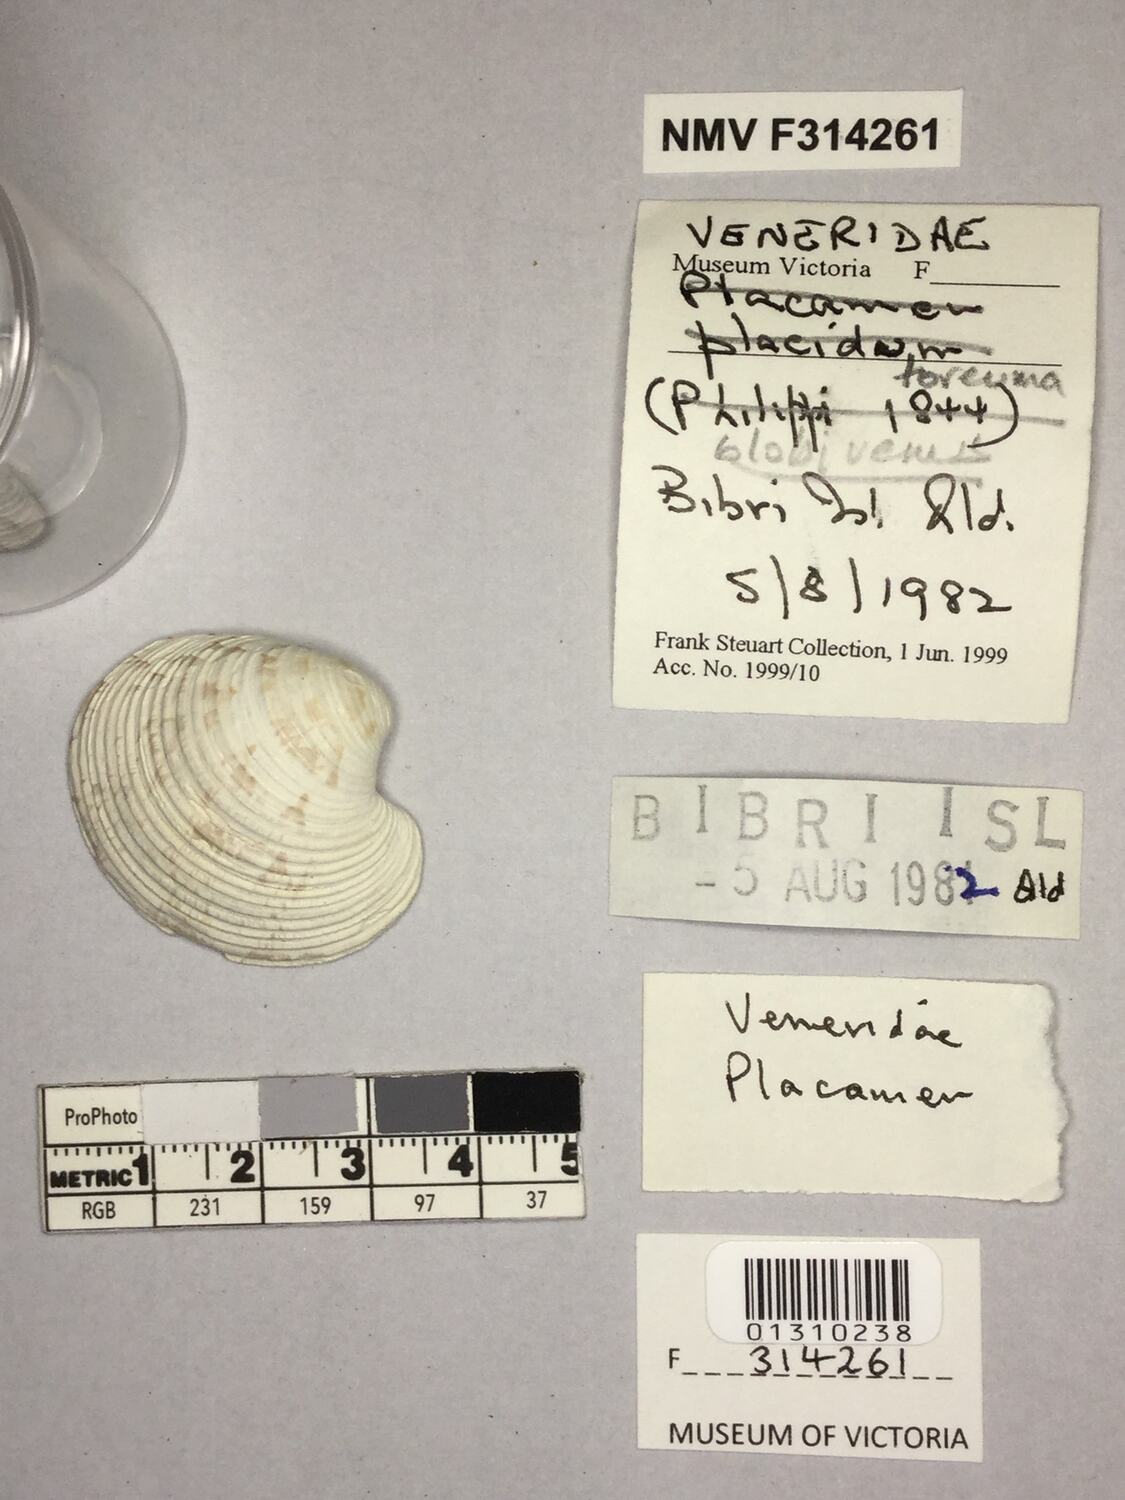 NMV F314261
VENERIDAE
Museum Victoria F
Placamen
placidum
toreuma
(Philippi 1844)
Globivenus
Bibri Isl Qld.
5/8/1982
Frank Steuart Collection, 1 Jun. 1999
Acc. No. 1999/10
BIBRI ISL
- 5 AUG 1982 Qld
Veneridae
Placamen
ProPhoto
METRIC 1 2 3 4 5
RGB 231 159 97 37
01310238
F 314261
MUSEUM OF VICTORIA